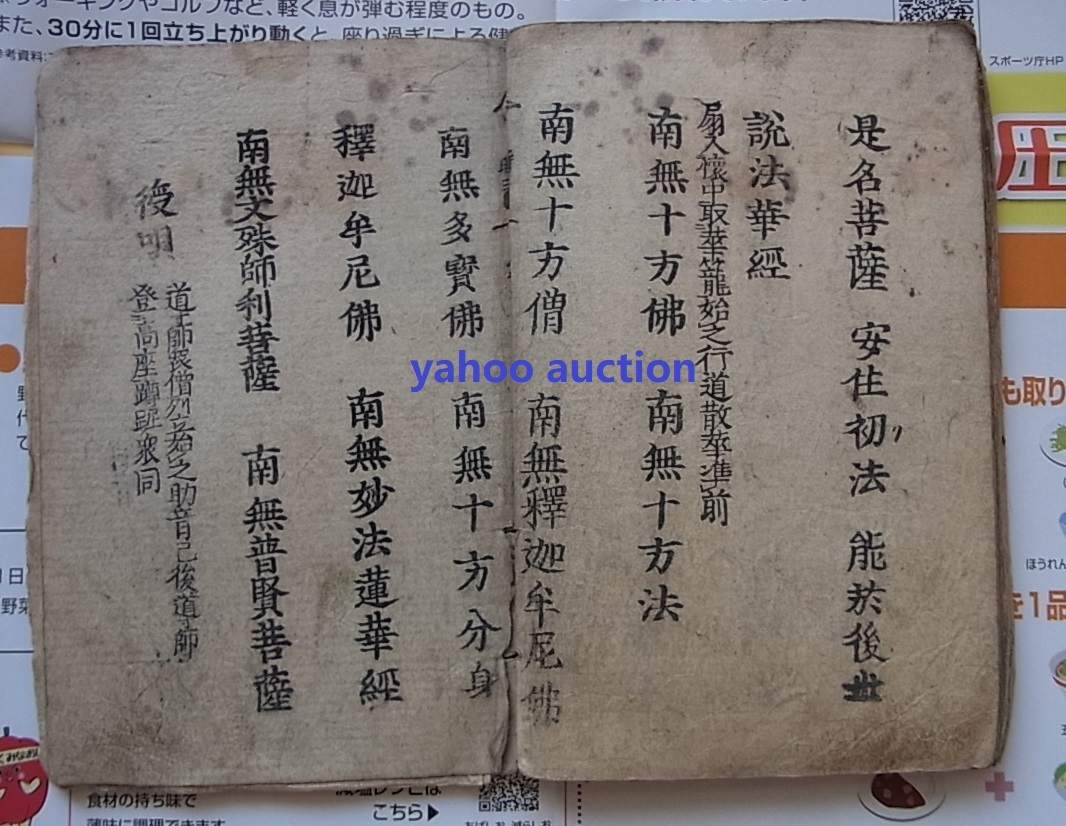 是名菩薩 安住初リ法 能於後世
說法華經
扇入懷中取華籠始之行道散華準前
南無十方佛 南無十方法
南無十方僧 南無釋迦牟尼佛
南無多寶佛 南無十方分身
釋迦牟尼佛 南無妙法蓮華經
南無文殊師利菩薩 南無普賢菩薩
後唄
道師
登高座蹲踞衆同
yahoo auction
ウォーキングやゴルフなど、軽く息が弾む程度のもの。
また、30分に1回立ち上がり動くと、座り過ぎによる健
参考資料:
スポーツ庁HP
も取り
ほうれん
を1品
食材の持ち味で
薄味に調理できます
減塩レシピは
こちら▶